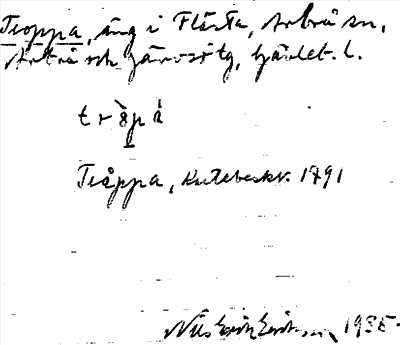 Troppa, äng i Flästa, Arbrå sn,
Arbrå och Järvsö tg, Gävlebt. l.
tròpá
Tråppa, Kartebeskr. 1791
Nils Erik Eriksson 1935